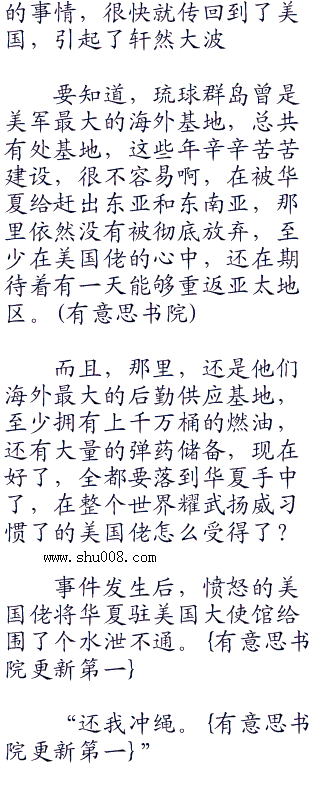 的事情，很快就传回到了美
国，引起了轩然大波
要知道，琉球群岛曾是
美军最大的海外基地，总共
有处基地，这些年辛辛苦苦
建设，很不容易啊，在被华
夏给赶出东亚和东南亚，那
里依然没有被彻底放弃，至
少在美国佬的心中，还在期
待着有一天能够重返亚太地
区。(有意思书院)
而且，那里，还是他们
海外最大的后勤供应基地，
至少拥有上千万桶的燃油，
还有大量的弹药储备，现在
好了，全都要落到华夏手中
了，在整个世界耀武扬威习
惯了的美国佬怎么受得了？
www.shu008.com
事件发生后，愤怒的美
国佬将华夏驻美国大使馆给
围了个水泄不通。{有意思书
院更新第一}
“还我冲绳。{有意思书
院更新第一}”